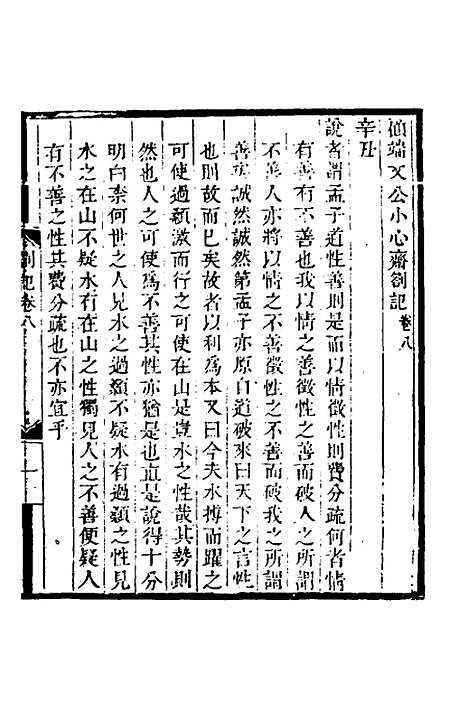 顧端文公小心齋劄記卷八
辛丑
說者謂孟子道性善則是而以情徵性則費分疏何者情
有善有不善也我以情之善徵性之善而破人之所謂
不善人亦將以情之不善徵性之不善而破我之所謂
善矣誠然誠然第孟子亦原自道破來曰天下之言性
也則故而已矣故者以利爲本又曰今夫水搏而躍之
可使過顙激而行之可使在山是豈水之性哉其勢則
然也人之可使爲不善其性亦猶是也直是說得十分
明白奈何世之人見水之過顙不疑水有過顙之性見
水之在山不疑水有在山之性獨見人之不善便疑人
有不善之性其費分疏也不亦宜乎
劄記卷八
一